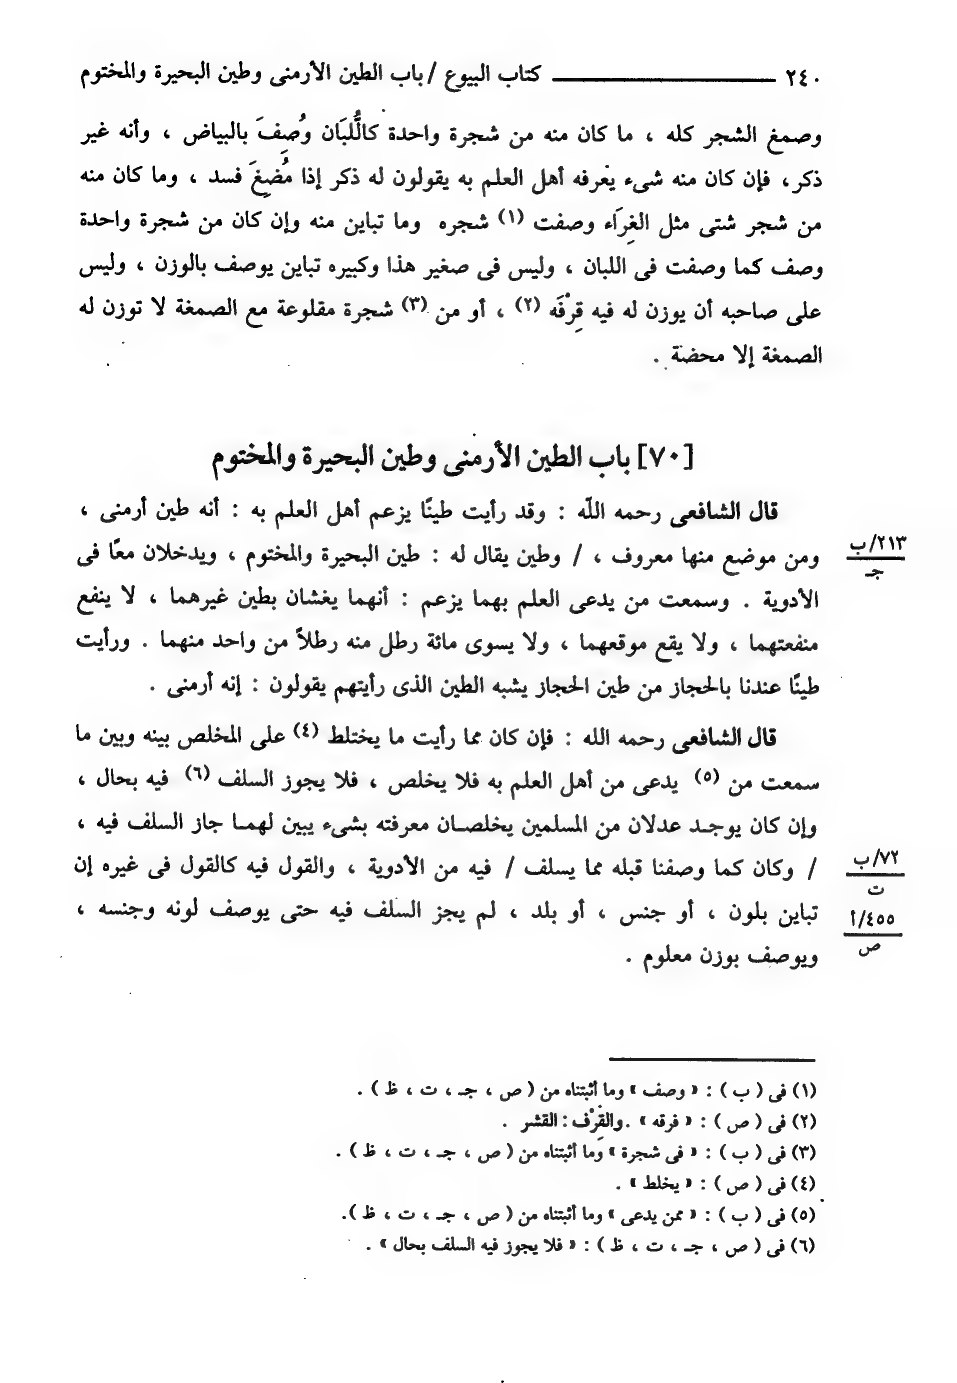 ٢٤٠ كتاب البيوع / باب الطين الأرمنى وطين البحيرة والمختوم
وصمغ الشجر كله ، ما كان منه من شجرة واحدة كاللُّبَان وُصِفَ بالبياض ، وأنه غير
ذكر، فإن كان منه شىء يعرفه أهل العلم به يقولون له ذكر إذا مُضِغَ فسد ، وما كان منه
من شجر شتى مثل الغِرَاء وصفت (١) شجره وما تباين منه وإن كان من شجرة واحدة
وصف كما وصفت فى اللبان ، وليس فى صغير هذا وكبيره تباين يوصف بالوزن ، وليس
على صاحبه أن يوزن له فيه قِرْفَه (٢) ، أو من (٣) شجرة مقلوعة مع الصمغة لا توزن له
الصمغة إلا محضة .
[٧٠] باب الطين الأرمنى وطين البحيرة والمختوم
قال الشافعى رحمه اللّه : وقد رأيت طينًا يزعم أهل العلم به : أنه طين أرمنى ،
ومن موضع منها معروف ، / وطين يقال له : طين البحيرة والمختوم ، ويدخلان معًا فى
٢١٣/ب
جـ
الأدوية . وسمعت من يدعى العلم بهما يزعم : أنهما يغشان بطين غيرهما ، لا ينفع
منفعتهما ، ولا يقع موقعهما ، ولا يسوى مائة رطل منه رطلاً من واحد منهما . ورأيت
طينًا عندنا بالحجاز من طين الحجاز يشبه الطين الذى رأيتهم يقولون : إنه أرمنى .
قال الشافعى رحمه الله : فإن كان مما رأيت ما يختلط (٤) على المخلص بينه وبين ما
سمعت من (٥) يدعى من أهل العلم به فلا يخلص ، فلا يجوز السلف (٦) فيه بحال ،
وإن كان يوجد عدلان من المسلمين يخلصان معرفته بشىء يبين لهما جاز السلف فيه ،
/ وكان كما وصفنا قبله مما يسلف / فيه من الأدوية ، والقول فيه كالقول فى غيره إن
٧٢/ب
ت
تباين بلون ، أو جنس ، أو بلد ، لم يجز السلف فيه حتى يوصف لونه وجنسه ،
٤٥٥/أ
ص
ويوصف بوزن معلوم .
(١) فى ( ب ) : « وصف » وما أثبتناه من ( ص ، جـ ، ت ، ظ ) .
(٢) فى ( ص ) : « فرقه » . والقِرْف : القشر .
(٣) فى ( ب ) : « فى شجرة » وما أثبتناه من ( ص ، جـ ، ت ، ظ ) .
(٤) فى ( ص ) : « يخلط » .
(٥) فى ( ب ) : « ممن يدعى » وما أثبتناه من ( ص ، جـ ، ت ، ظ ).
(٦) فى ( ص ، جـ ، ت ، ظ ) : « فلا يجوز فيه السلف بحال » .